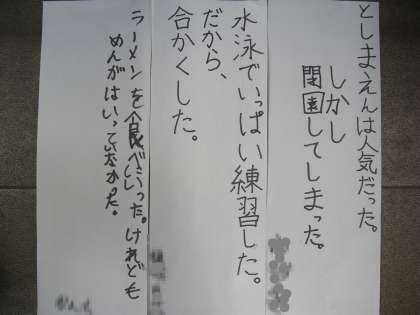 としまえんは人気だった。
しかし
閉園してしまった。
水泳でいっぱい練習した。
だから、
合かくした。
ラーメンを食べにいった。けれども
めんがはいっていなかった。